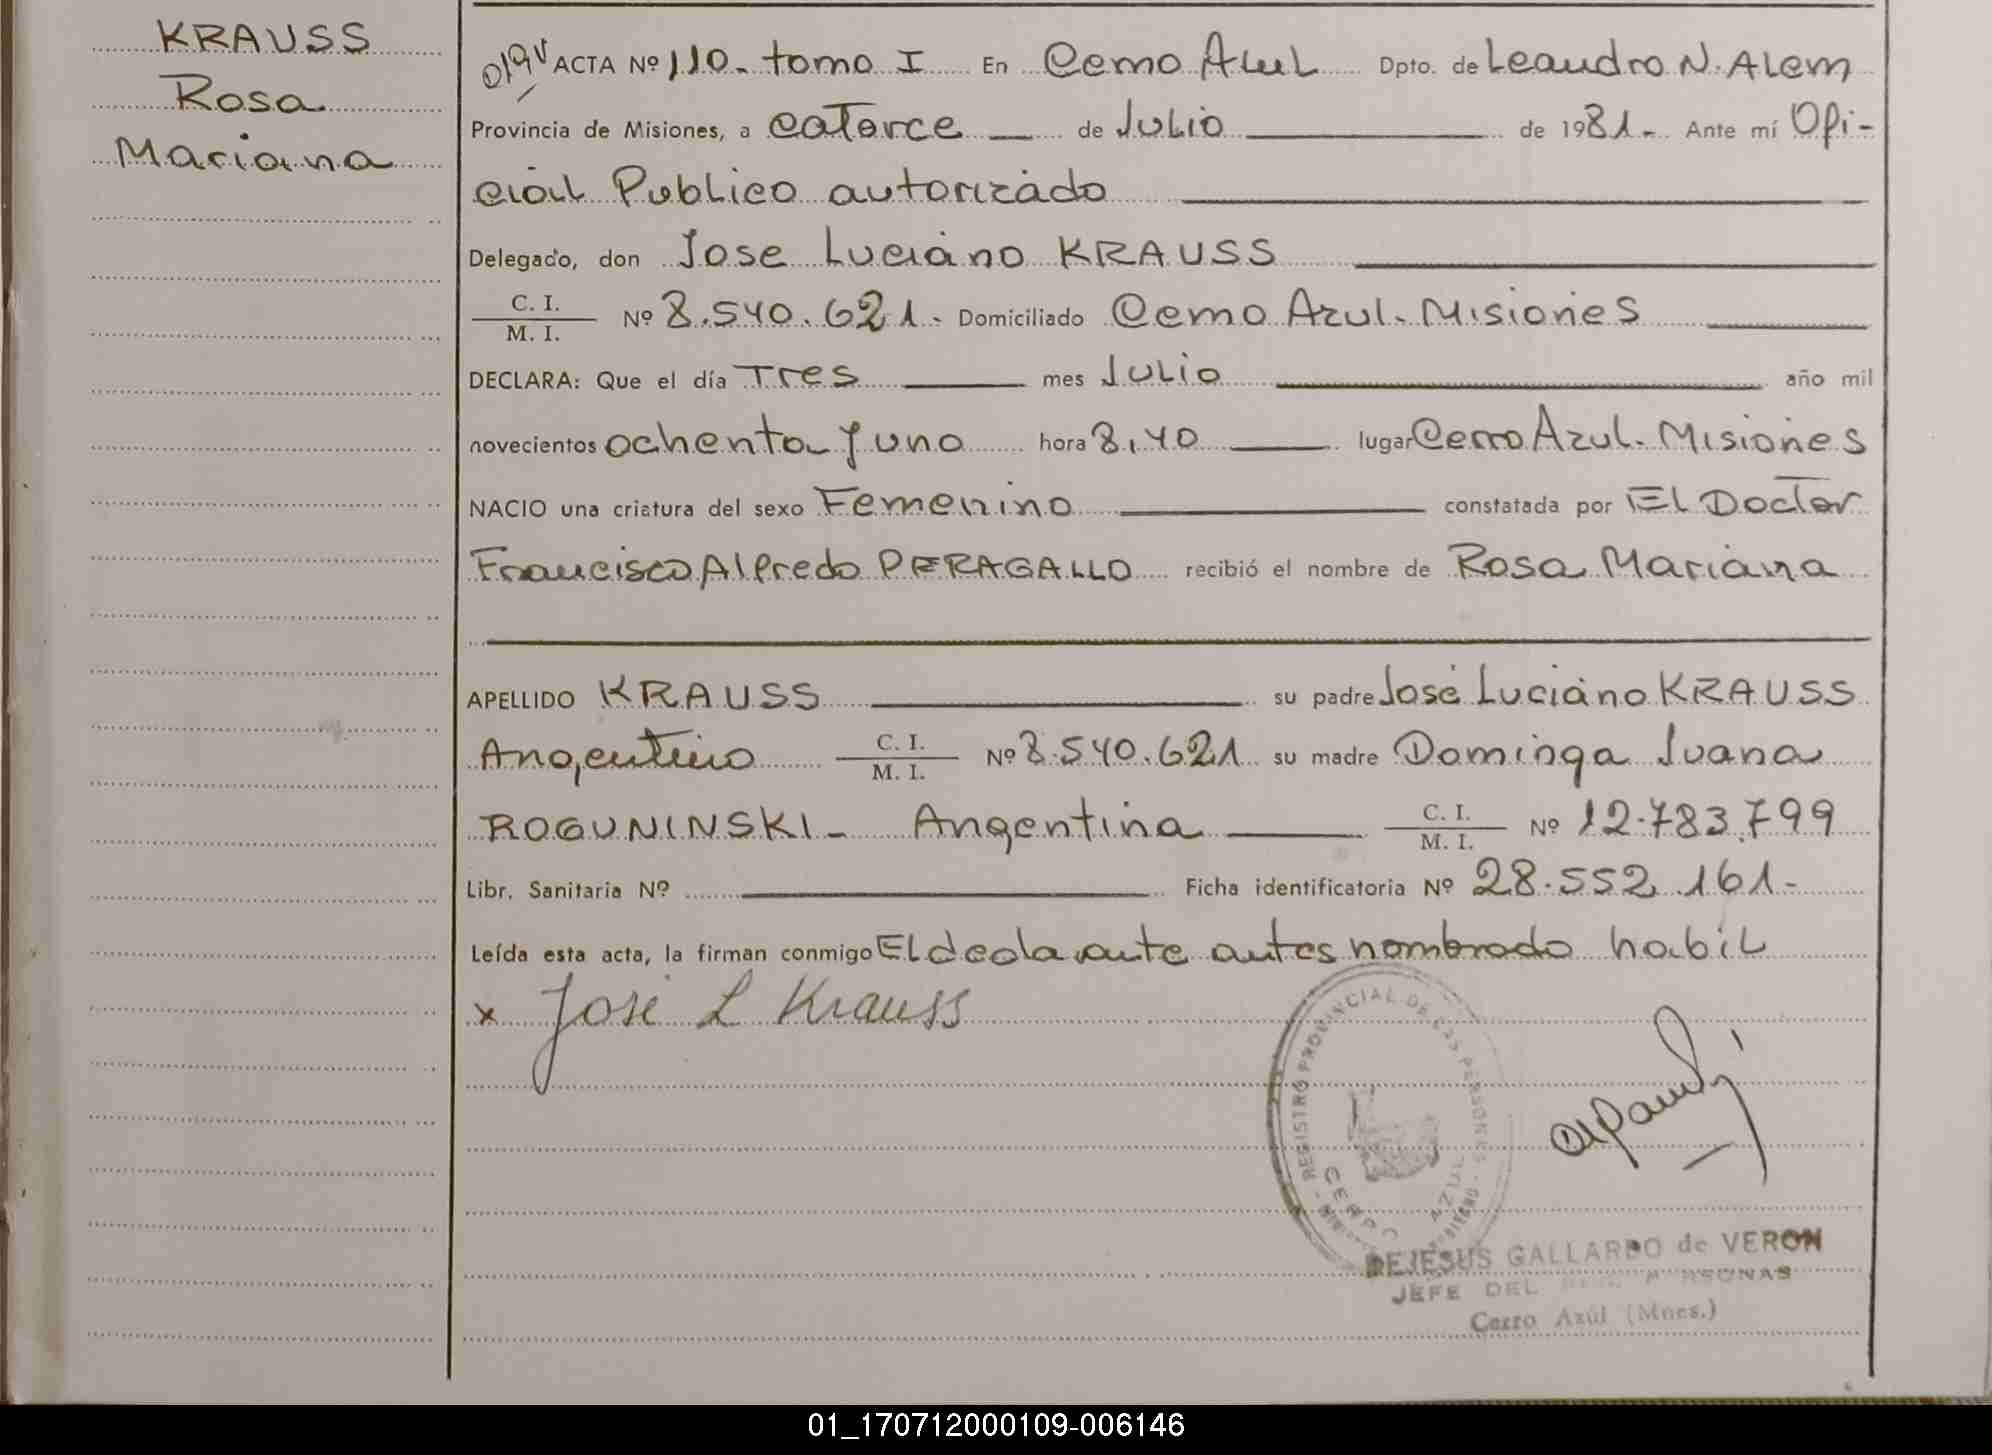 KRAUSS
Rosa
Mariana
ACTA Nº 110. tomo I En Cerro Azul Dpto. de Leandro N. Alem
Provincia de Misiones, a catorce de Julio de 1981.- Ante mí Ofi-
cial Publico autorizado
Delegado, don Jose Luciano KRAUSS
C. I.
M. I. Nº 8.540.621.- Domiciliado Cerro Azul. Misiones
DECLARA: Que el día Tres mes Julio año mil
novecientos ochenta y uno hora 8,40 lugar Cerro Azul. Misiones
NACIO una criatura del sexo Femenino constatada por El Doctor
Francisco Alfredo PERAGALLO recibió el nombre de Rosa Mariana
APELLIDO KRAUSS su padre José Luciano KRAUSS
Argentino C. I. M. I. Nº 8.540.621 su madre Dominga Juana
ROGUNINSKI - Argentina C. I. M. I. Nº 12.783.799
Libr. Sanitaria Nº Ficha identificatoria Nº 28.552.161-
Leída esta acta, la firman conmigo El declarante antes nombrado habil
x José L Krauss
REGISTRO PROVINCIAL DE LAS PERSONAS
CERRO AZUL
DEJESUS GALLARDO de VERON
JEFE DEL PERSONAS
Cerro Azúl (Mnes.)
01_170712000109-006146